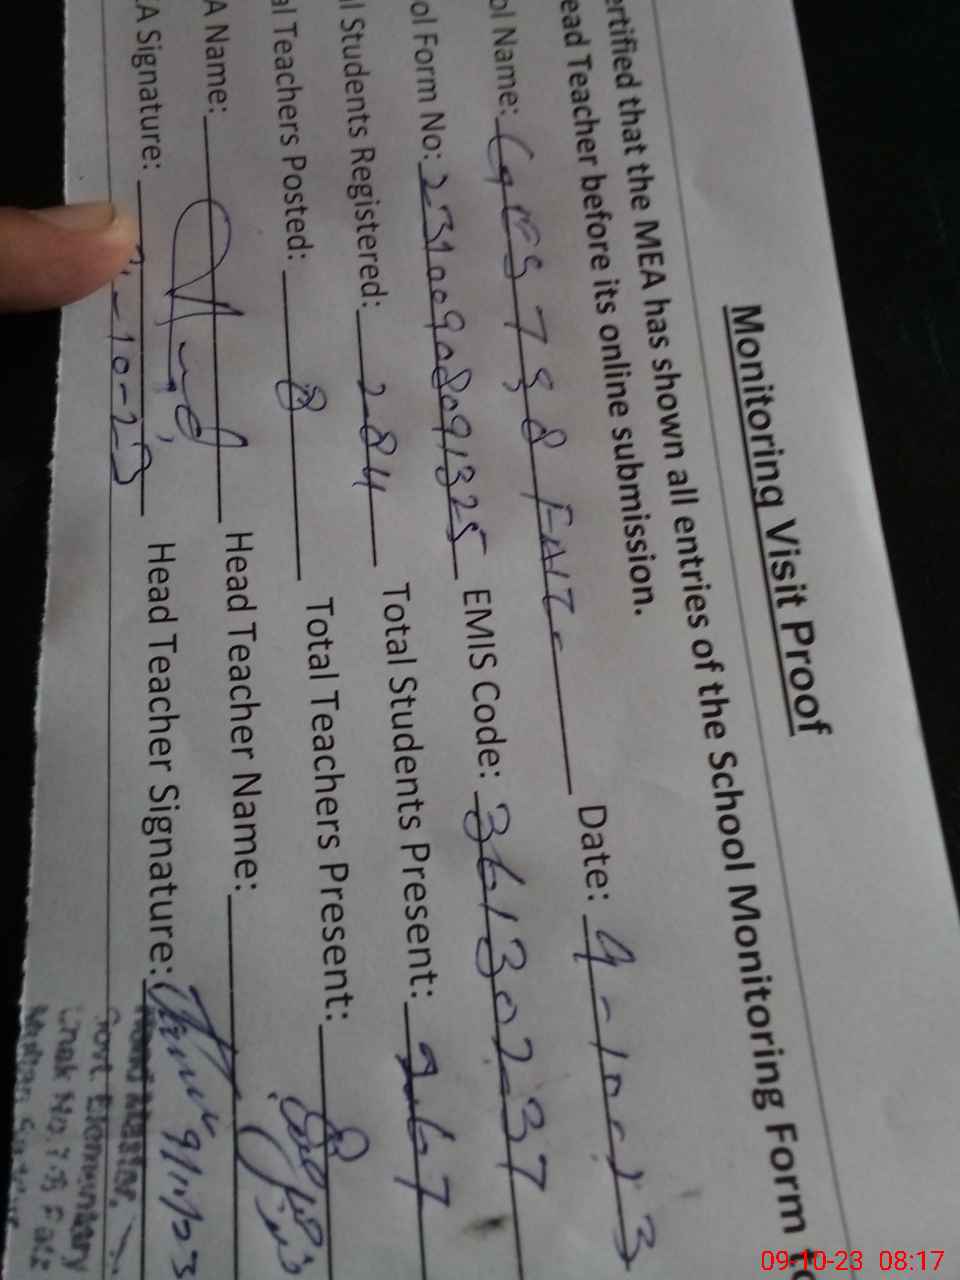 Monitoring Visit Proof
ertified that the MEA has shown all entries of the School Monitoring Form to
ead Teacher before its online submission.
ol Name: GMS 758 Date: 9-10-23
ol Form No: 23100908091325 EMIS Code: 36130237
l Students Registered: 284 Total Students Present: 267
al Teachers Posted: 8 Total Teachers Present: 8
A Name: Head Teacher Name:
A Signature: Head Teacher Signature:
-10-23
Head Master
Govt. Elementary
Chak No.
09-10-23 08:17